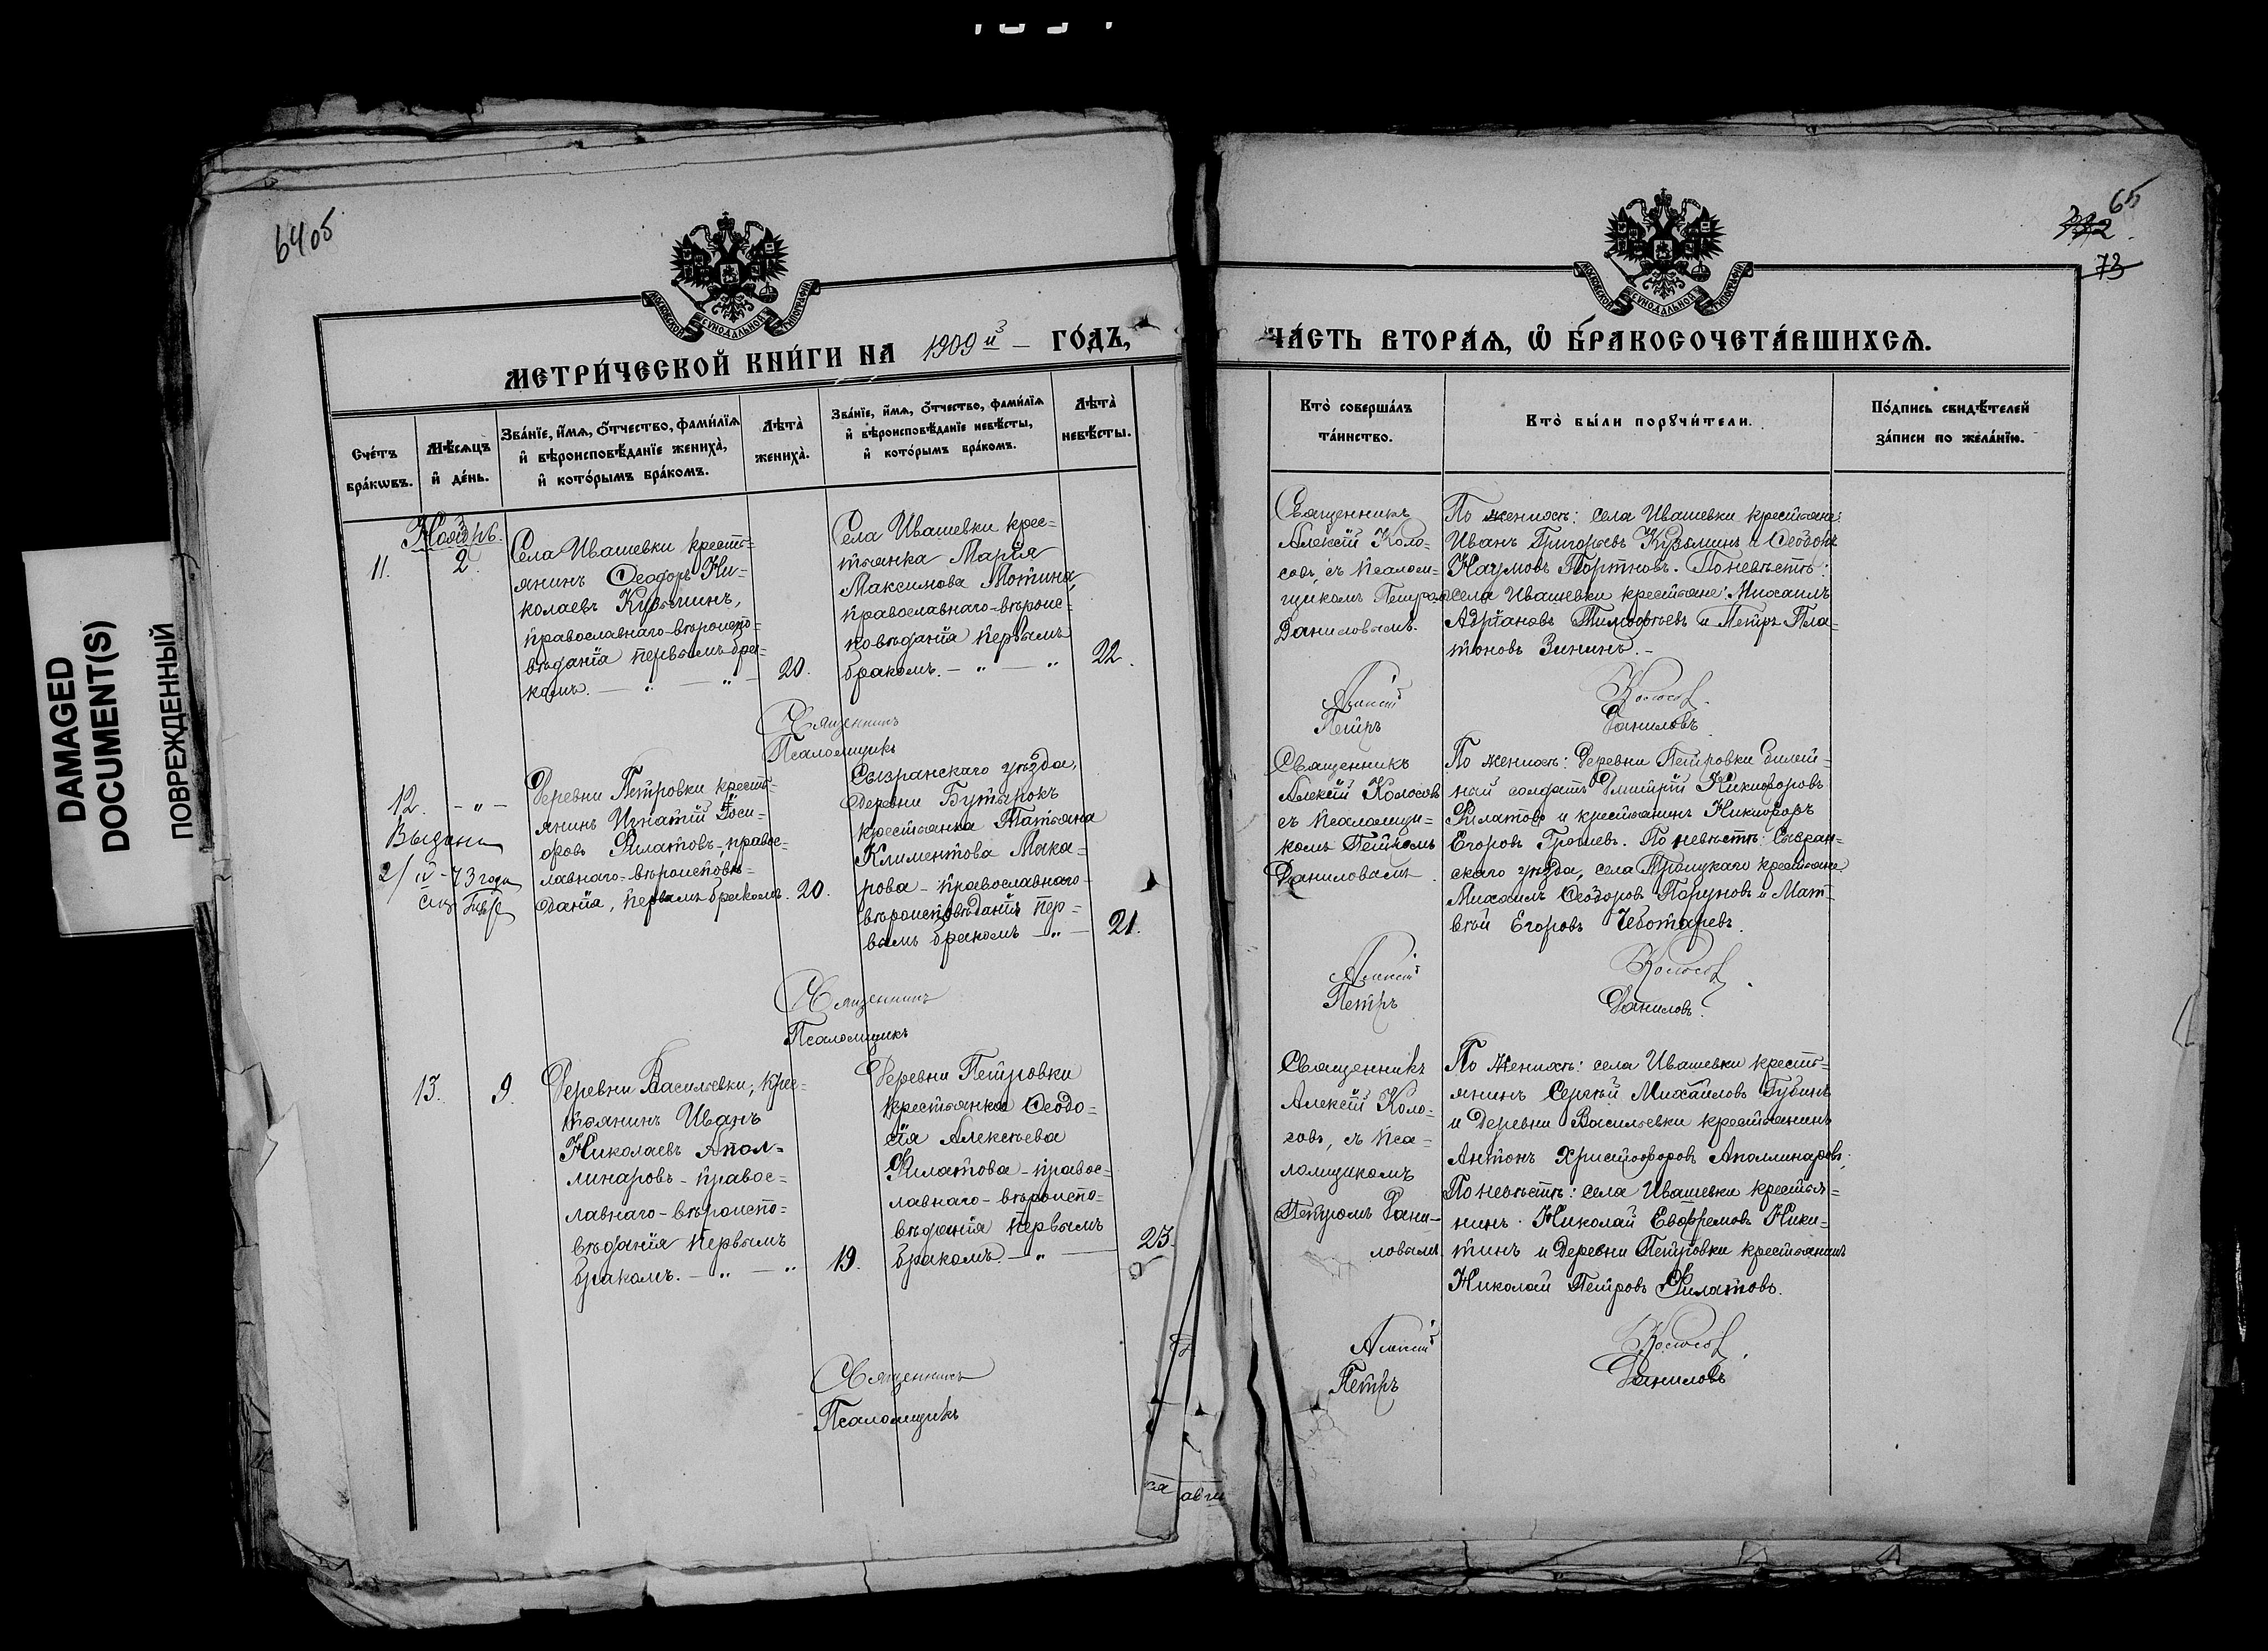 DAMAGED
DOCUMENT(S)
ПОВРЕЖДЕННЫЙ
64об
МОСКОВСКОЙ СѴНОДАЛЬНОЙ ТИПОГРАФІИ
МЕТРИ́ЧЕСКОЙ КНИ́ГИ НА 1909й — ГО́ДЪ,
Сче́тъ бра́кѡвъ.
Мѣ́сѧцъ и҆ де́нь.
Зва́нїе, и҆́мѧ, ѻ҆́тчество, фами́лїѧ
и҆ вѣроисповѣ́данїе жениха̀,
и҆ кото́рымъ бра́комъ.
Лѣта̀
жениха̀.
Зва́нїе, и҆́мѧ, ѻ҆́тчество, фами́лїѧ
и҆ вѣроисповѣ́данїе невѣ́сты,
и҆ кото́рымъ бра́комъ.
Лѣта̀
невѣ́сты.
Ноябрь.
11.
2.
Села Ивашевки кресть=
янинъ Ѳеодоръ Ни=
колаевъ Кузьминъ,
православнаго-вѣроиспо=
вѣданія первымъ бра=
комъ. — " — " —
20.
Села Ивашевки крес=
тьянка Марія
Максимова Мотина,
православнаго-вѣроис=
повѣданія первымъ
бракомъ. — " — "
22.
Священникъ
Псаломщикъ
12.
— " —
Выдана
2/IV-73 года
Деревни Петровки кресть=
янинъ Игнатій
Филатовъ, правос=
лавнаго-вѣроисповѣ=
данія, первымъ бракомъ.
20.
Сызранскаго уѣзда,
деревни Бутырокъ
крестьянка Татьяна
Климентова Мака=
рова — православнаго-
вѣроисповѣданія пер=
вымъ бракомъ — " —
21.
Священникъ
Псаломщикъ
13.
9.
Деревни Васильевки, крес=
тьянинъ Иванъ
Николаевъ Апол=
линаровъ — правос=
лавнаго-вѣроиспо=
вѣданія первымъ
бракомъ. — " — "
19.
Деревни Петровки
крестьянка Ѳеодо=
сія Алексѣева
Филатова — правос=
лавнаго-вѣроиспо=
вѣданія первымъ
бракомъ. — " —
23.
Священникъ
Псаломщикъ
65
73
МОСКОВСКОЙ СѴНОДАЛЬНОЙ ТИПОГРАФІИ
ЧА́СТЬ ВТОРА́Ѧ, Ѡ҆ БРАКОСОЧЕТА́ВШИХСѦ.
Кто̀ соверша́лъ
та́инство.
Кто̀ бы́ли порꙋчи́тели.
По́дпись свидѣ́телей
за́писи по жела́нїю.
Священникъ
Алексій Коло=
совъ, съ псалом=
щикомъ Петромъ
Даниловымъ.
По женихѣ: села Ивашевки крестьяне:
Иванъ Григорьевъ Кузьминъ и
Наумовъ Портновъ. По невѣстѣ:
села Ивашевки крестьяне: Михаилъ
Адріановъ Тимофѣевъ и Петръ Пла=
тоновъ Зининъ. —
Алексій Колосовъ.
Петръ Даниловъ.
Священникъ
Алексій Колосовъ
съ псаломщи=
комъ Петромъ
Даниловымъ.
По женихѣ: деревни Петровки
солдатъ Димитрій Никифоровъ
Филатовъ и крестьянинъ Никифоръ
Егоровъ Грошевъ. По невѣстѣ: Сызран=
скаго уѣзда, села Троицкаго крестьяне
Михаилъ Ѳеодоровъ и Мат=
вѣй Егоровъ Чеботаревъ.
Алексій Колосовъ.
Петръ Даниловъ.
Священникъ
Алексій Коло=
совъ, съ пса=
ломщикомъ
Петромъ Дани=
ловымъ.
По женихѣ: села Ивашевки кресть=
янинъ Сергѣй Михайловъ Губинъ
и деревни Васильевки крестьянинъ
Антонъ Христофоровъ Аполлинаровъ;
По невѣстѣ: села Ивашевки крестья=
нинъ Николай Евфремовъ Ники=
тинъ и деревни Петровки крестьянинъ
Николай Петровъ Филатовъ.
Алексій Колосовъ.
Петръ Даниловъ